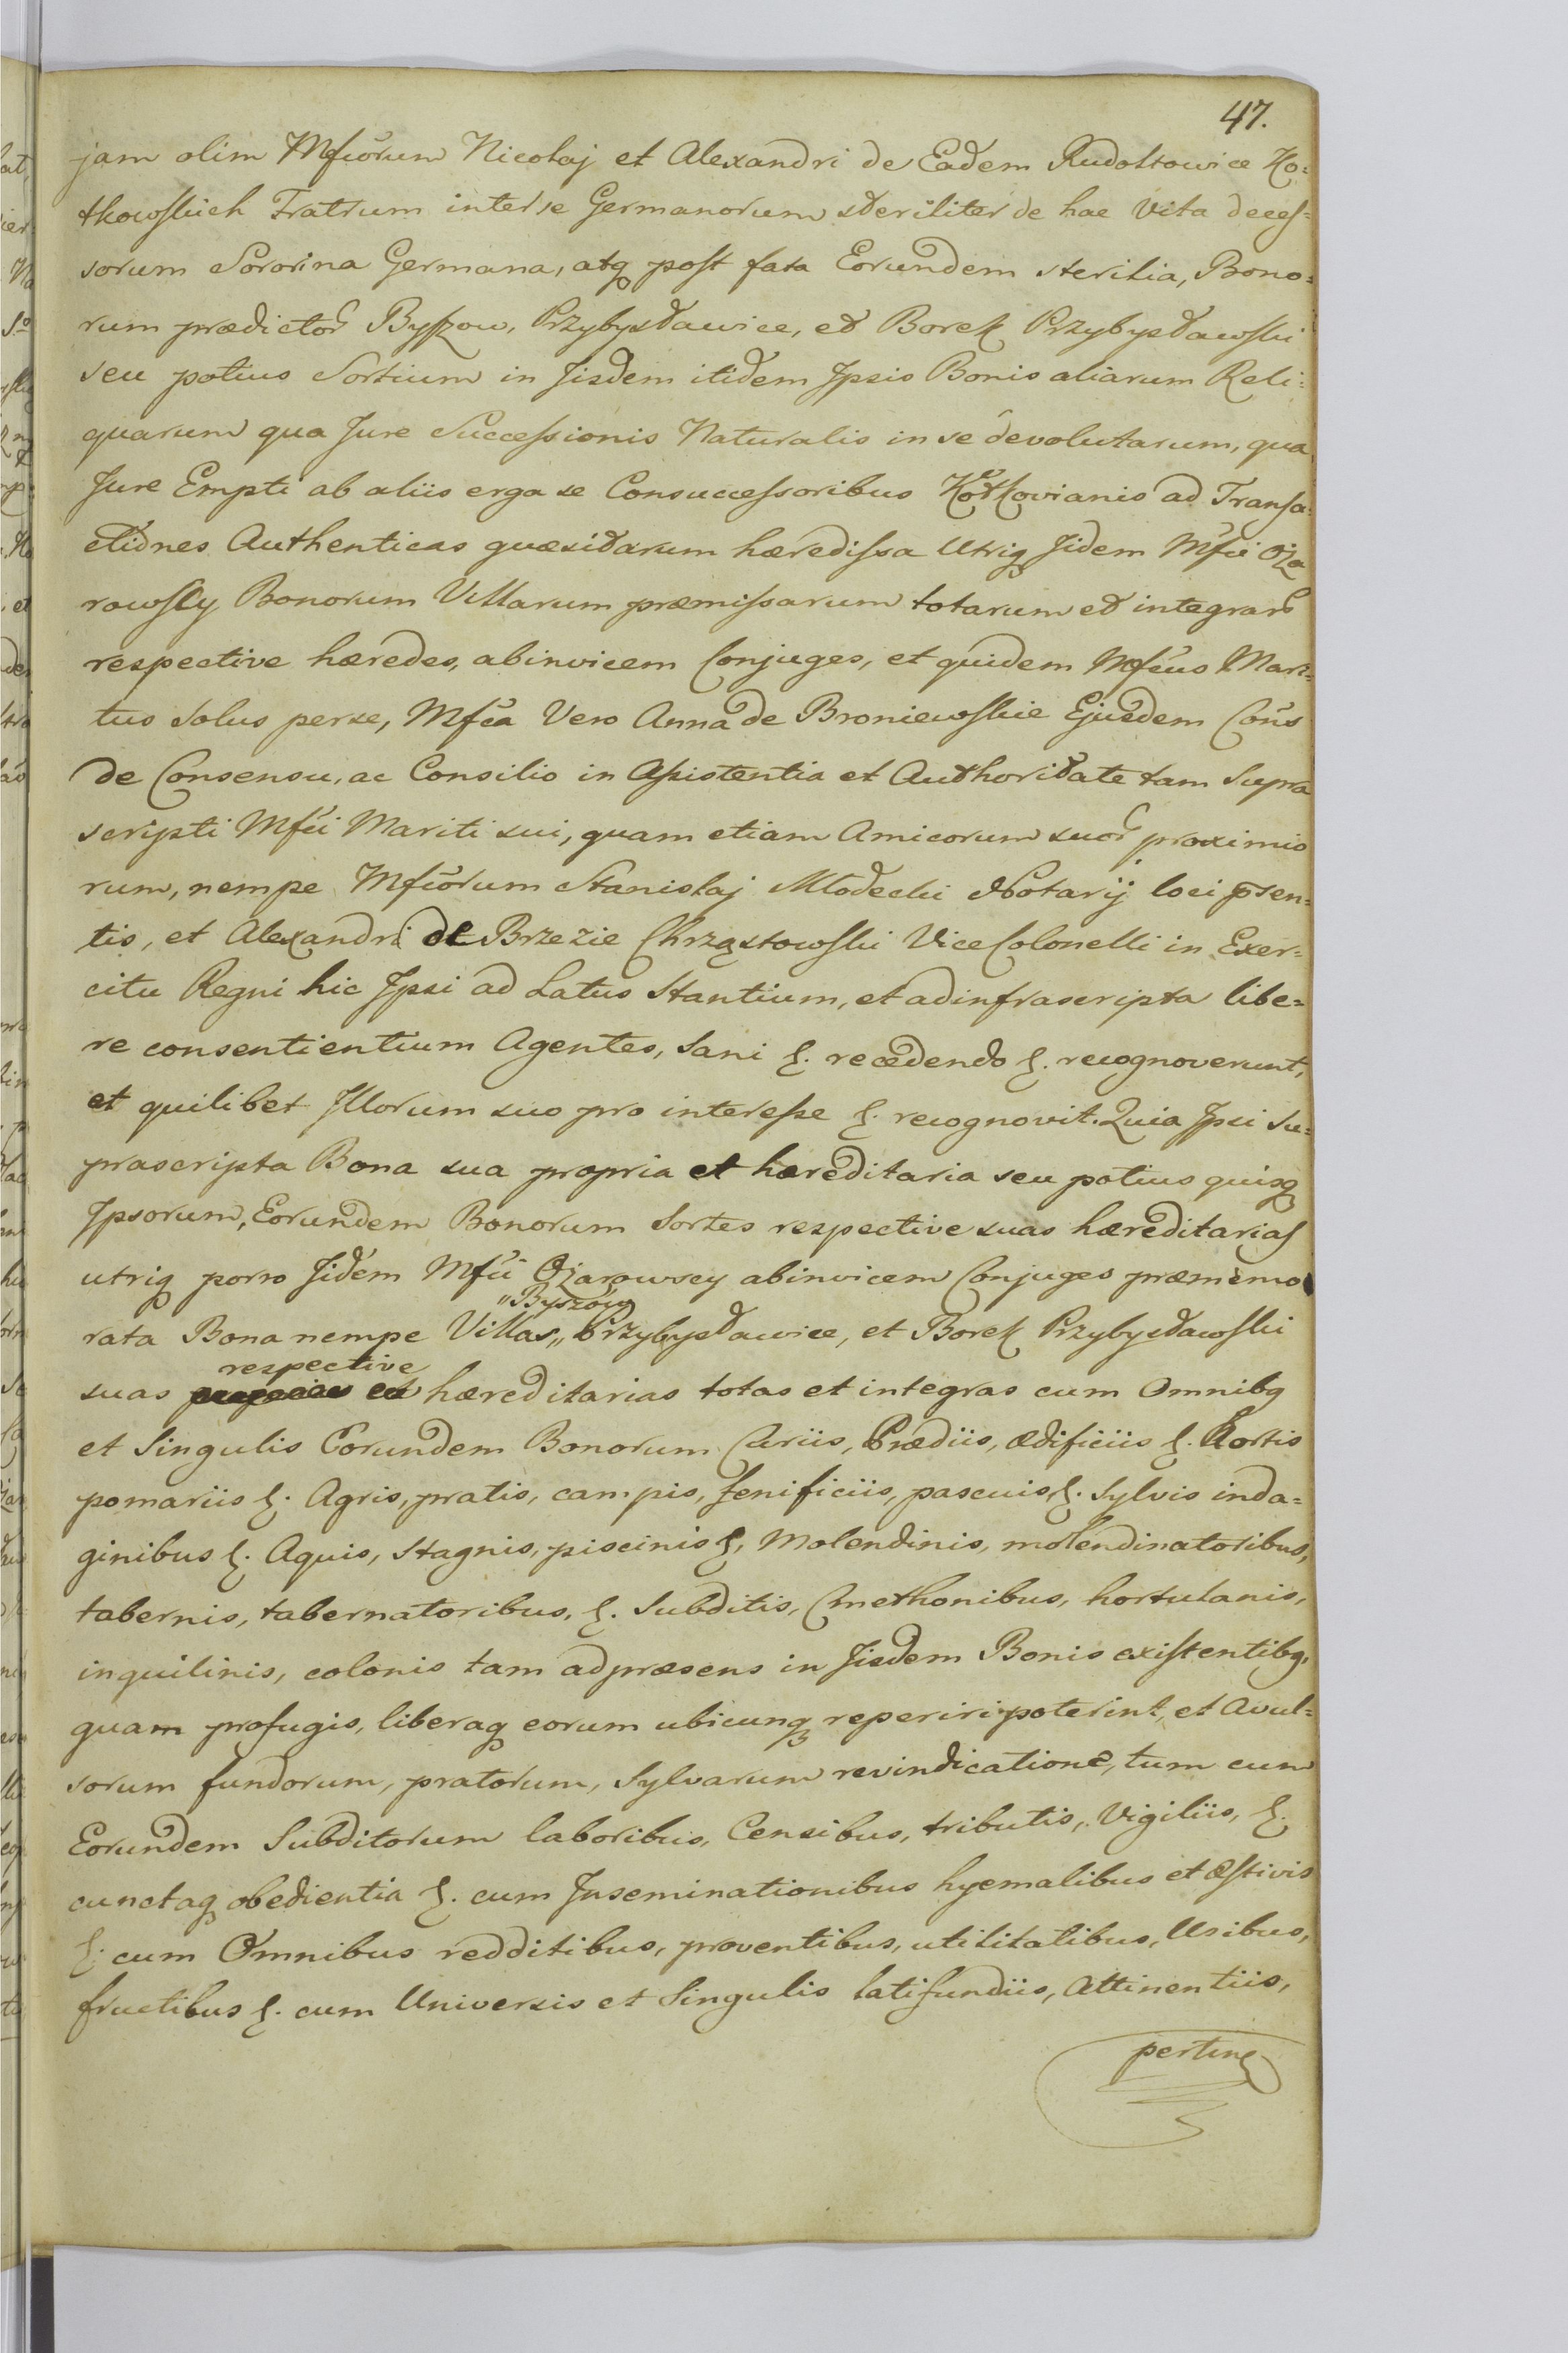 47.
jam olim Mfcorum Nicolaj et Alexandri de Eadem Rudoltowice Ko=
tkowskich Fratrum inter se Germanorum steriliter de hac Vita deces=
sorum Sororina Germana, atq post fata Eorundem sterilia, Bono=
rum prædictor Byszow, Przybysławice, et Borek Przybysławski
seu potius Sortium in Jisdem itidem Ipsis Bonis aliarum Reli=
quarum qua Jure Successionis Naturalis in se devolutarum, qua
Jure Empti ab aliis erga se Consuccessoribus Kotkovianis ad Transa=
ctiones Authenticas quæsitarum hæredissa Utriq Jidem Mfci Oża
rowscy Bonorum Villarum præmissarum totarum et integrar
respective hæredes, abinvicem Conjuges, et quidem Mfcus Mari=
tus solus per se, Mfca Vero Anna de Broniewskie Ejusdem Cons
de Consensu, ac Consilio in Assistentia et Authoritate tam Supra
scripti Mfci Mariti sui, quam etiam Amicorum suor proximio
rum, nempe Mfcorum Stanislaj Młodecki Notarij loci psen=
tis, et Alexandri de Brzezie Chrząstowski Vice Colonelli in Exer=
citu Regni hic Ipsi ad Latus Stantium, et ad infrascripta libe=
re consentientium Agentes, Sani &. recedendo &. recognoverunt,
et quilibet Illorum suo pro interesse &. recognovit. Quia Ipsi Su=
prascripta Bona sua propria et hæreditaria seu potius quisq
Ipsorum, Eorundem Bonorum Sortes respective suas hæreditarias
utriq porro Jidem Mfci Ożarowscy abinvicem Conjuges præmemo
rata Bona nempe Villas „Byszów„ Przybysławice, et Borek Przybysławski
suas respective hæreditarias totas et integras cum Omnibq
et Singulis Eorundem Bonorum Curiis, Prædiis, ædificiis &. Hortis
pomariis &. Agris, pratis, campis, fenificiis, pascuis &. Sylvis inda=
ginibus &. Aquis, stagnis, piscinis &, Molendinis, molendinatoribus,
tabernis, tabernatoribus, &. Subditis, Cmethonibus, hortulanis,
inquilinis, colonis tam ad præsens in Jisdem Bonis existentibq,
quam profugis, liberaq eorum ubicunq reperiri poterint, et Avul=
sorum fundorum, pratorum, Sylvarum revindicatione, tum cum
Eorundem Subditorum laboribus, Censibus, tributis, Vigiliis, &.
cunctaq obedientia &. cum Inseminationibus hyemalibus et æstivis
&. cum Omnibus redditibus, proventibus, utilitatibus, Usibus,
fructibus &. cum Universis et Singulis latifundiis, Attinentiis,
pertine